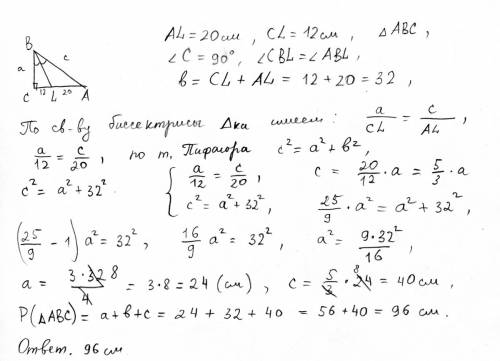 AL = 20 см, CL = 12 см, △ABC,
∠C = 90°, ∠CBL = ∠ABL,
b = CL + AL = 12 + 20 = 32,
B
a c
C 12 L 20 A
По св-ву биссектрисы Δка имеем: a/CL = c/AL,
a/12 = c/20, по т. Пифагора c² = a² + b²,
c² = a² + 32². { a/12 = c/20, c² = a² + 32², c = 20/12 · a = 5/3 · a
25/9 · a² = a² + 32²,
(25/9 − 1) a² = 32², 16/9 a² = 32², a² = 9·32²/16,
a = 3·32 8/4 = 3·8 = 24 (см), c = 5/3 · 24 8 = 40 см,
P(△ABC) = a + b + c = 24 + 32 + 40 = 56 + 40 = 96 см.
Ответ. 96 см